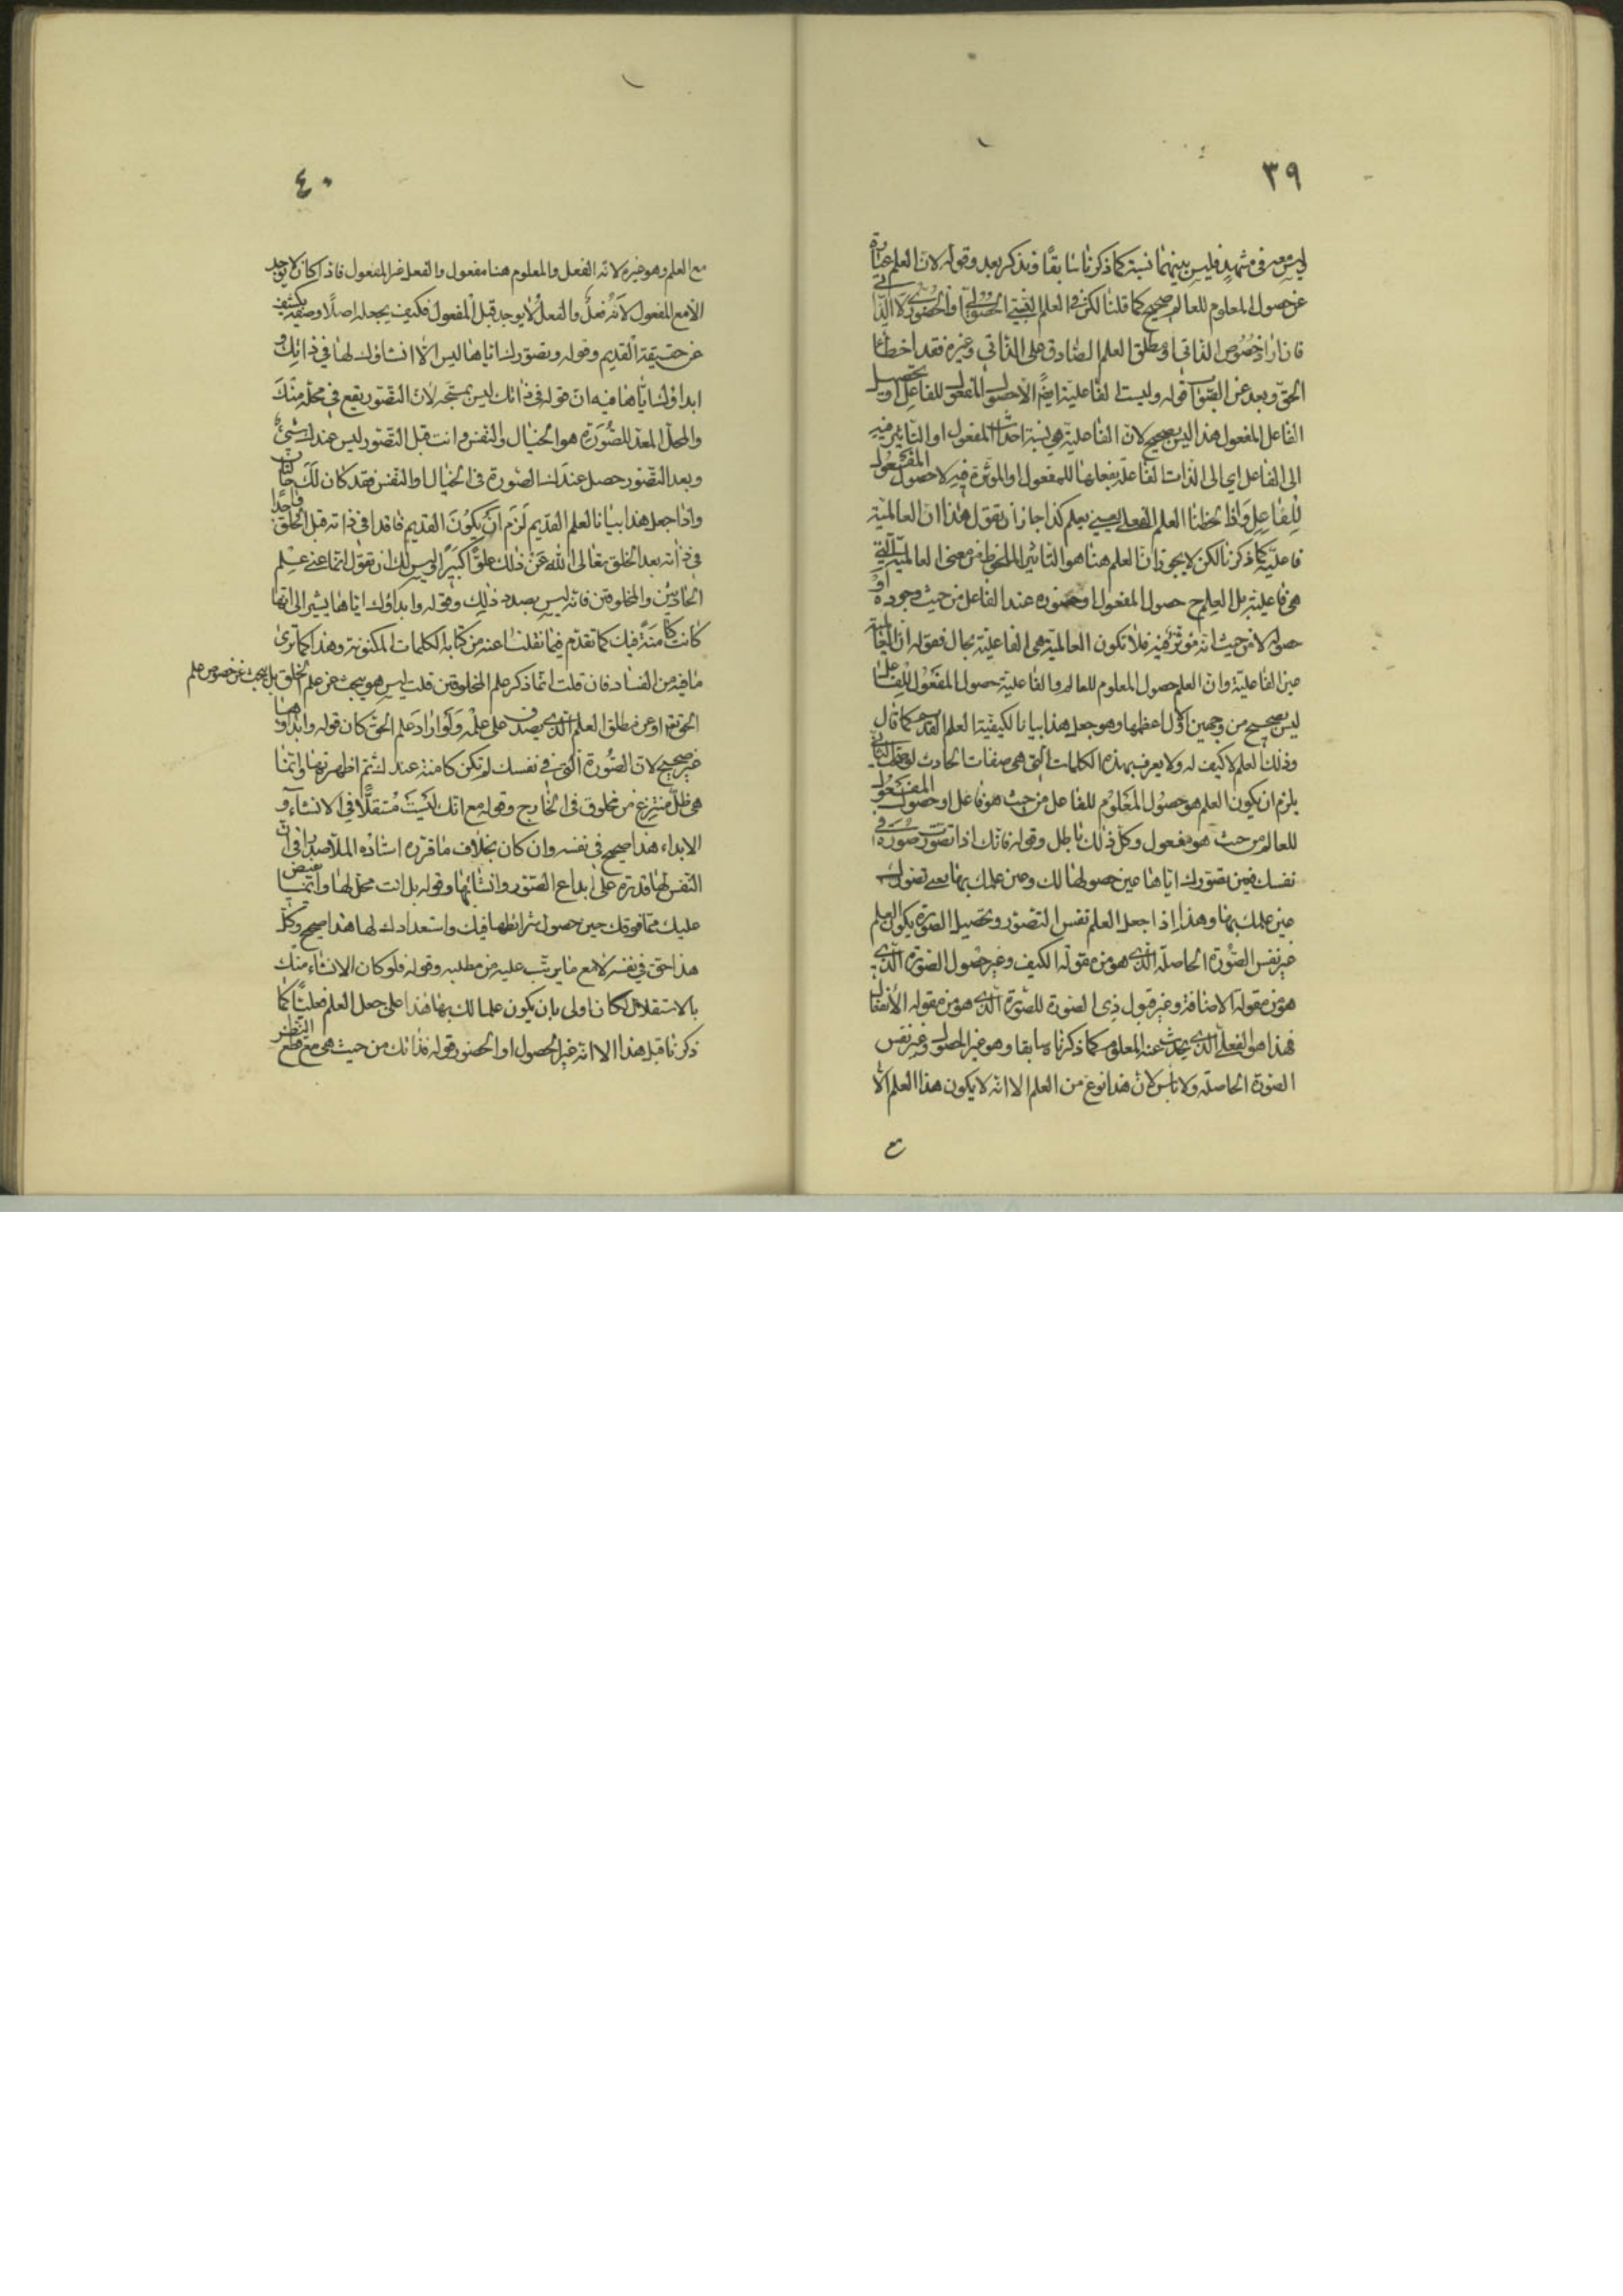 ٣٩
ليس هو في مشهد فليس بينهما نسبة كما ذكرنا سابقا ونذكر بعد وقوله لان العلم عبارة
عن حصول المعلوم للعالم صحيح كما قلنا لكن في العلم الحصولي او الحضوري لا الذاتي
فان اراد خصوص الذاتي او مطلق العلم الصادق على الذاتي وغيره فقد اخطأ
الحق وبعد عن الصواب قوله وليست الفاعلية ايضا الا حصول المفعول للفاعل او تحصيل
الفاعل المفعول هذا ليس بصحيح لان الفاعلية هي نسبة احداث المفعول او التأثير فيه
الى الفاعل اي الى الذات الفاعلة بفعلها للمفعول او المؤثرة فيه لا حصول المفعول
للفاعل واذا لحظنا العلم الفعلي يعني يعلم كذا جاز ان نقول هذا ان العالمية
فاعلية كما ذكرنا لكن لا يجوز ان العلم هنا هو التأثير الملحوظ من معنى العالمية التي
هي فاعلية بل العلم ح حصول المفعول او حضوره عند الفاعل من حيث وجوده او
حصوله لا من حيث انه مؤثر فيه فلا تكون العالمية هي الفاعلية بحال فقوله ان العالمية
عين الفاعلية وان العلم حصول المعلوم للعالم والفاعلية حصول المفعول للفاعل
ليس بصحيح من وجهين الاول اعظمها وهو جعل هذا بيانا لكيفية العلم القديم كما قال
وذلك العلم لا كيف له ولا يعرف بهذه الكلمات التي هي صفات الحادث الثاني
يلزم ان يكون العلم هو حصول المعلوم للفاعل من حيث هو فاعل او حصول المفعول
للعالم من حيث هو مفعول وكل ذلك باطل وقوله فانك اذا تصورت صورة في
نفسك فعين تصورك اياها عين حصولها لك وعين علمك بها يعني تصورك
عين علمك بها وهذا اذا جعل العلم نفس التصور وتحصيل الصورة يكون العلم
غير نفس الصورة الحاصلة الذي هو من مقولة الكيف وغير حصول الصورة الذي
هو من مقولة الاضافة وغير قبول ذي الصورة للصورة الذي هو من مقولة الانفعال
فهذا هو الفعلي الذي يحدث عنه المعلوم كما ذكرنا سابقا وهو غير الحصول وغير نفس
الصورة الحاصلة ولا بأس لان هذا نوع من العلم الا انه لا يكون هذا العلم الا
مع
٤٠
مع العلم وهو غيره لانه الفعل والمعلوم هنا مفعول والفعل غير المفعول فاذا كان لا يوجد
الا مع المفعول لانه فعل والفعل لا يوجد قبل المفعول فكيف يجعله اصلا وصفة يكشف
عن حقيقة القديم وقوله وتصورك اياها ليس الا انشاؤك لها في ذاتك و
ابداؤك اياها فيه ان قوله في ذاتك ليس بمتجه لان التصور يقع في محله منك
والمحل المعد للصورة هو الخيال والنفس وانت قبل التصور ليس عندك شيء
وبعد التصور حصل عندك الصورة في الخيال او النفس فقد كان لك حالتان
واذا جعل هذا بيانا لعلم القديم لزم ان يكون القديم فاقدا في ذاته قبل الخلق واجدا
في ذاته بعد الخلق تعالى الله عن ذلك علوا كبيرا وليس لك ان تقول انما عنى علم
الحادثين والمخلوقين فانه ليس بصدد ذلك وقوله وابداؤك اياها يشير الى انها
كانت كامنة فيك كما تقدم فيما نقلنا عنه من كتابه الكلمات المكنونة وهذا كما ترى
ما فيه من الفساد فان قلت انما ذكر علم المخلوقين قلت ليس هو يبحث عن علم الخلق بل يبحث عن خصوص علم
الحق تعالى او عن مطلق العلم الذي يصدق على علمه ولو اراد علم الحق كان قوله وابداؤك اياها
غير صحيح لان الصورة التي في نفسك لم تكن كامنة عندك ثم اظهرتها وانما
هي ظل منتزع من مخلوق في الخارج وقوله مع انك لست مستقلا في الانشاء و
الابداء هذا صحيح في نفسه وان كان بخلاف ما قرره استاده الملا صدرا في ان
النفس لها قدرة على ابداع الصور وانشائها وقوله بل انت محل لها وانما تفيض
عليك مما فوقك حين حصول شرائطها فيك واستعدادك لها هذا صحيح وكل
هذا حق في نفسه لا مع ما يرتب عليه من مطلبه وقوله فلو كان الانشاء منك
بالاستقلال لكان اولى بان يكون علما لك بها هذا على جعل العلم فعليا كما
ذكرنا قبل هذا الا انه غير الحصول او الحضور قوله فذاتك من حيث هي مع قطع النظر